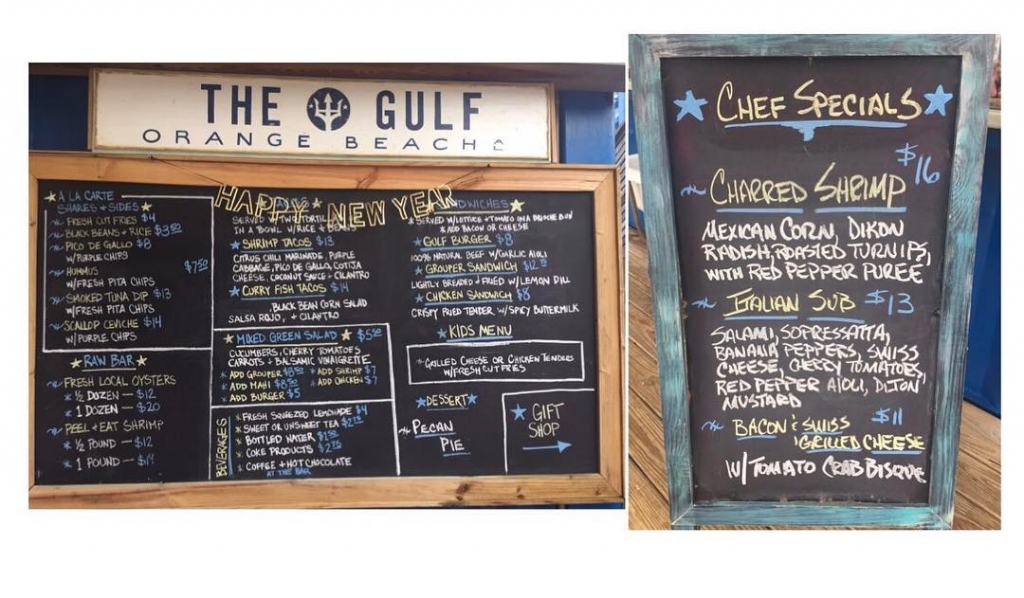 THE GULF
ORANGE BEACH
HAPPY NEW YEAR
A LA CARTE
SHARES + SIDES
FRESH CUT FRIES $4
BLACK BEANS + RICE $3.50
PICO DE GALLO $8
W/PURPLE CHIPS
HUMMUS $7.50
W/FRESH PITA CHIPS
SMOKED TUNA DIP $13
W/FRESH PITA CHIPS
SCALLOP CEVICHE $14
W/PURPLE CHIPS
RAW BAR
FRESH LOCAL OYSTERS
1/2 DOZEN — $12
1 DOZEN — $20
PEEL + EAT SHRIMP
1/2 POUND — $12
1 POUND —
SERVED W/TWO
IN A BOWL W/RICE +
SHRIMP TACOS $13
CITRUS CHILI MARINADE, PURPLE
CABBAGE, PICO DE GALLO, COTIJA
CHEESE, COCONUT SAUCE + CILANTRO
CURRY FISH TACOS $14
BLACK BEAN CORN SALAD
SALSA ROJO, + CILANTRO
MIXED GREEN SALAD $5.50
CUCUMBERS, CHERRY TOMATOES
CARROTS + BALSAMIC VINAIGRETTE
ADD GROUPER $8.50 ADD SHRIMP $7
ADD MAHI $8.50 ADD CHICKEN $7
ADD BURGER $5
BEVERAGES
FRESH SQUEEZED LEMONADE $4
SWEET OR UNSWEET TEA
BOTTLED WATER
COKE PRODUCTS
COFFEE + HOT CHOCOLATE
AT THE BAR
SERVED W/LETTUCE + TOMATO IN A BRIOCHE BUN
ADD BACON OR CHEESE
GULF BURGER $8
100% NATURAL BEEF W/GARLIC AIOLI
GROUPER SANDWICH
LIGHTLY BREADED + FRIED W/LEMON DILL
CHICKEN SANDWICH $8
CRISPY FRIED TENDER W/SPICY BUTTERMILK
KIDS MENU
GRILLED CHEESE OR CHICKEN TENDERS
W/FRESH CUT FRIES
DESSERT
PECAN
PIE
GIFT
SHOP
CHEF SPECIALS
$16
CHARRED SHRIMP
MEXICAN CORN, DIKON
RADISH, ROASTED TURNIPS,
WITH RED PEPPER PUREE
ITALIAN SUB $13
SALAMI, SOPRESSATTA,
BANANA PEPPERS, SWISS
CHEESE, CHERRY TOMATOES,
RED PEPPER AIOLI, DIJON
MUSTARD
BACON & SWISS $11
GRILLED CHEESE
W/TOMATO CRAB BISQUE